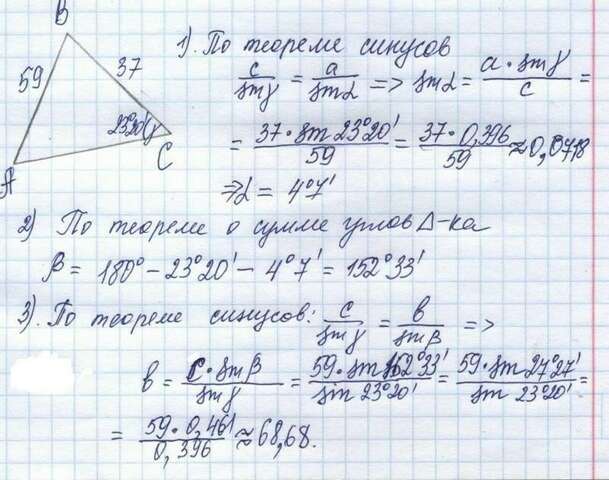 B
59
37
23°20' γ
A
C
1). По теореме синусов
c/sin γ = a/sin α => sin α = a · sin γ/c =
= 37 · sin 23°20'/59 = 37 · 0,396/59 ≈ 0,0718
=> α = 4°7'
2) По теореме о сумме углов Δ-ка
β = 180° – 23°20' – 4°7' = 152°33'
3). По теореме синусов: c/sin γ = b/sin β =>
b = c · sin β/sin γ = 59 · sin 152°33'/sin 23°20' = 59 · sin 27°27'/sin 23°20' =
= 59 · 0,461/0,396 ≈ 68,68.